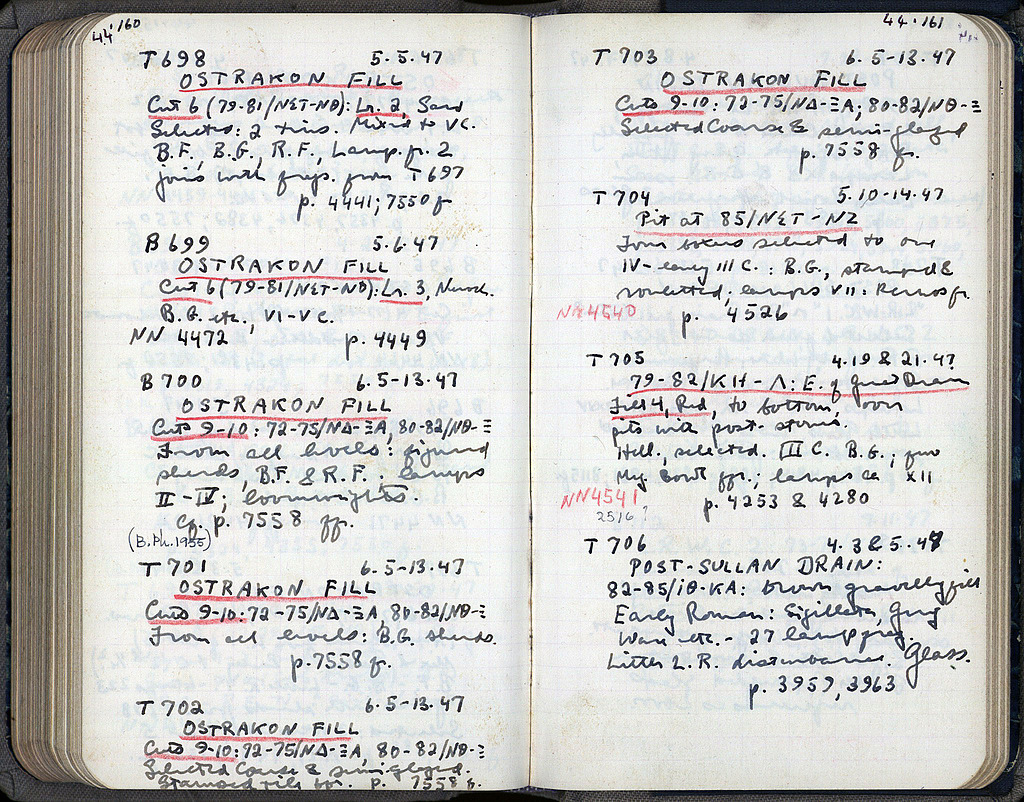 44'160
T 698 5.5.47
OSTRAKON FILL
Cut 6 (79-81/ΝΣΤ-ΝΘ): Lr. 2, Sand
Selected: 2 tins. Mixed to V C.
B.F., B.G., R.F., Lamp fr. 2
joins with frags. from T 697
p. 4441; 7550 ff
B 699 5.6.47
OSTRAKON FILL
Cut 6 (79-81/ΝΣΤ-ΝΘ): Lr. 3,
B.G. etc., VI-V C.
NN 4472 p. 4449
B 700 6.5-13.47
OSTRAKON FILL
Cuts 9-10: 72-75/ΝΔ-ΞΑ, 80-82/ΝΘ-Ξ
From all levels: figured
sherds, B.F. & R.F.; lamps
II-IV; loomweights.
Cf. p. 7558 ff.
(B.Ph. 1955)
T 701 6.5-13.47
OSTRAKON FILL
Cuts 9-10: 72-75/ΝΔ-ΞΑ, 80-82/ΝΘ-Ξ
From all levels: B.G. sherds.
p. 7558 ff.
T 702 6.5-13.47
OSTRAKON FILL
Cuts 9-10: 72-75/ΝΔ-ΞΑ, 80-82/ΝΘ-Ξ
Selected Coarse & semi-glazed.
Stamped tile p. 7558 ff.
44'161
T 703 6.5-13.47
OSTRAKON FILL
Cuts 9-10: 72-75/ΝΔ-ΞΑ; 80-82/ΝΘ-Ξ
Selected Coarse & semi-glazed
p. 7558 ff.
T 704 5.10-14.47
Pit at 85/ΝΣΤ-ΝΖ
Four boxes selected to one
IV-early III C.: B.G., stamped &
rouletted; lamps VII:
NN 4540 p. 4526
T 705 4.19 & 21.47
79-82/ΚΗ-Λ: E. of Great Drain
Fill 4, Red, to bottom, over
pits with post-stones
Hell., selected. III C. B.G.; few
Meg. Bowl fgs.; lamps XII
NN 4541 p. 4253 & 4280
2516?
T 706 4.3 & 5.47
POST-SULLAN DRAIN:
82-85/ΙΘ-ΚΑ: brown gravelly fill
Early Roman: Sigillata, Grey
Ware etc. - 27 lamp frag.
Little L.R. disturbance. Glass.
p. 3959, 3963